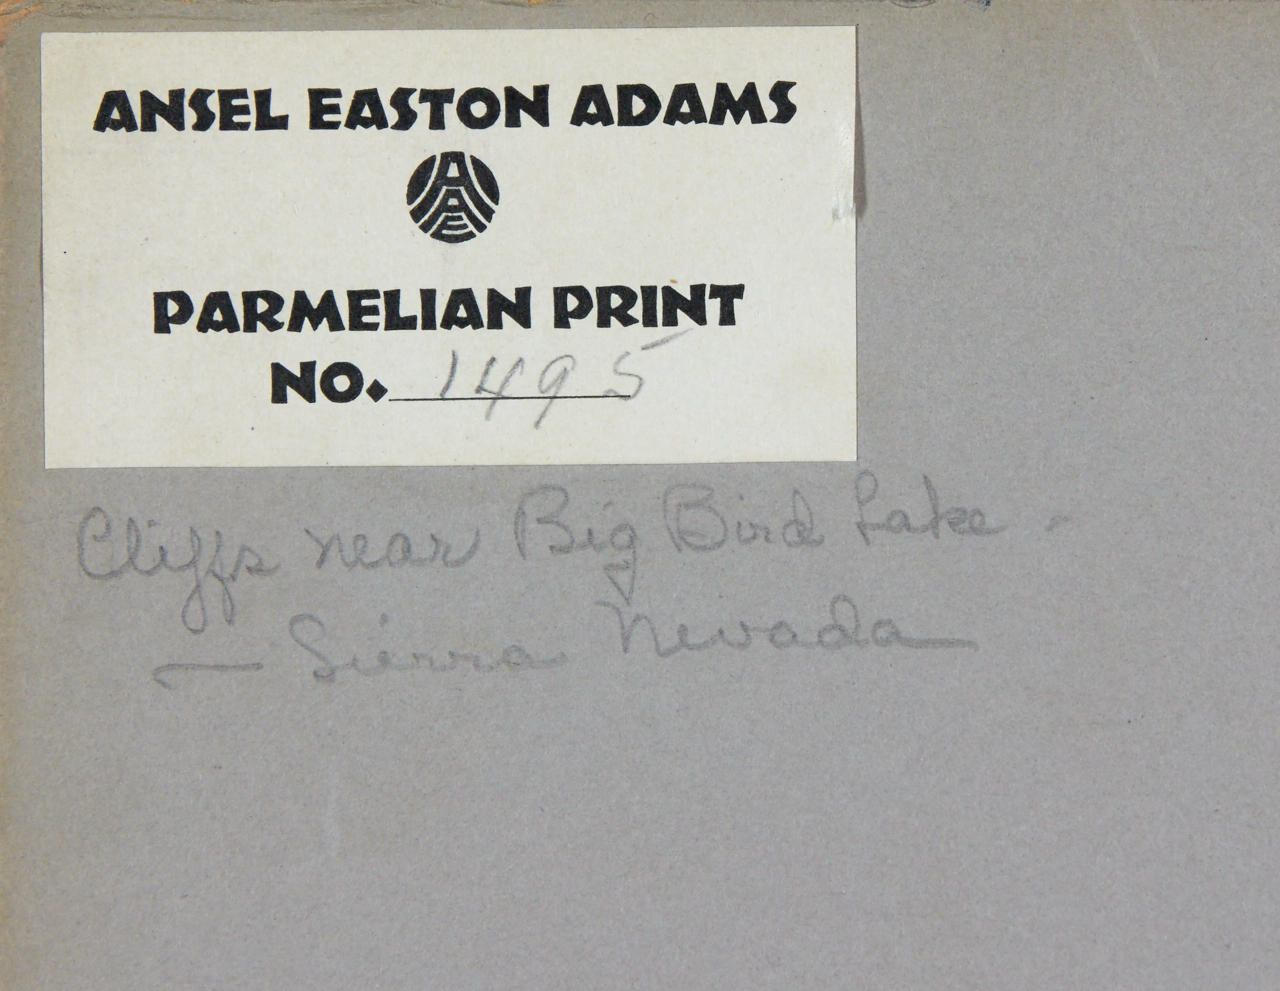 ANSEL EASTON ADAMS
AAE
PARMELIAN PRINT
NO. 1495
Cliffs near Big Bird Lake -
— Sierra Nevada